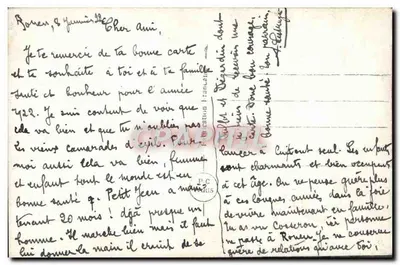 Rouen, 8 Janvier
Cher Ami,
Je te remercie de ta bonne carte
et te souhaite à toi et à ta famille
santé et bonheur pour l'année
1922. Je suis content de voir que
cela va bien et que tu n'oublies pas
les vieux camarades d'exil. Pour
moi aussi cela va bien, femme
et enfant tout le monde est en
bonne santé. Petit Jean a main-
tenant 20 mois! déjà presque un
homme. Il marche bien mais il faut
lui donner la main il craint de se
lancer à tout seul. Les enfants
sont charmants et bien occupants
à cet âge. On ne pense guère plus
à ces longues années dans la joie
de vivre maintenant en famille.
Tu as vu ici personne
ne passe à Rouen. Je ne conserve
guère de relations qu'avec toi,
et Dejardin dont
je viens de recevoir une
carte. Donc bon courage,
bonne santé